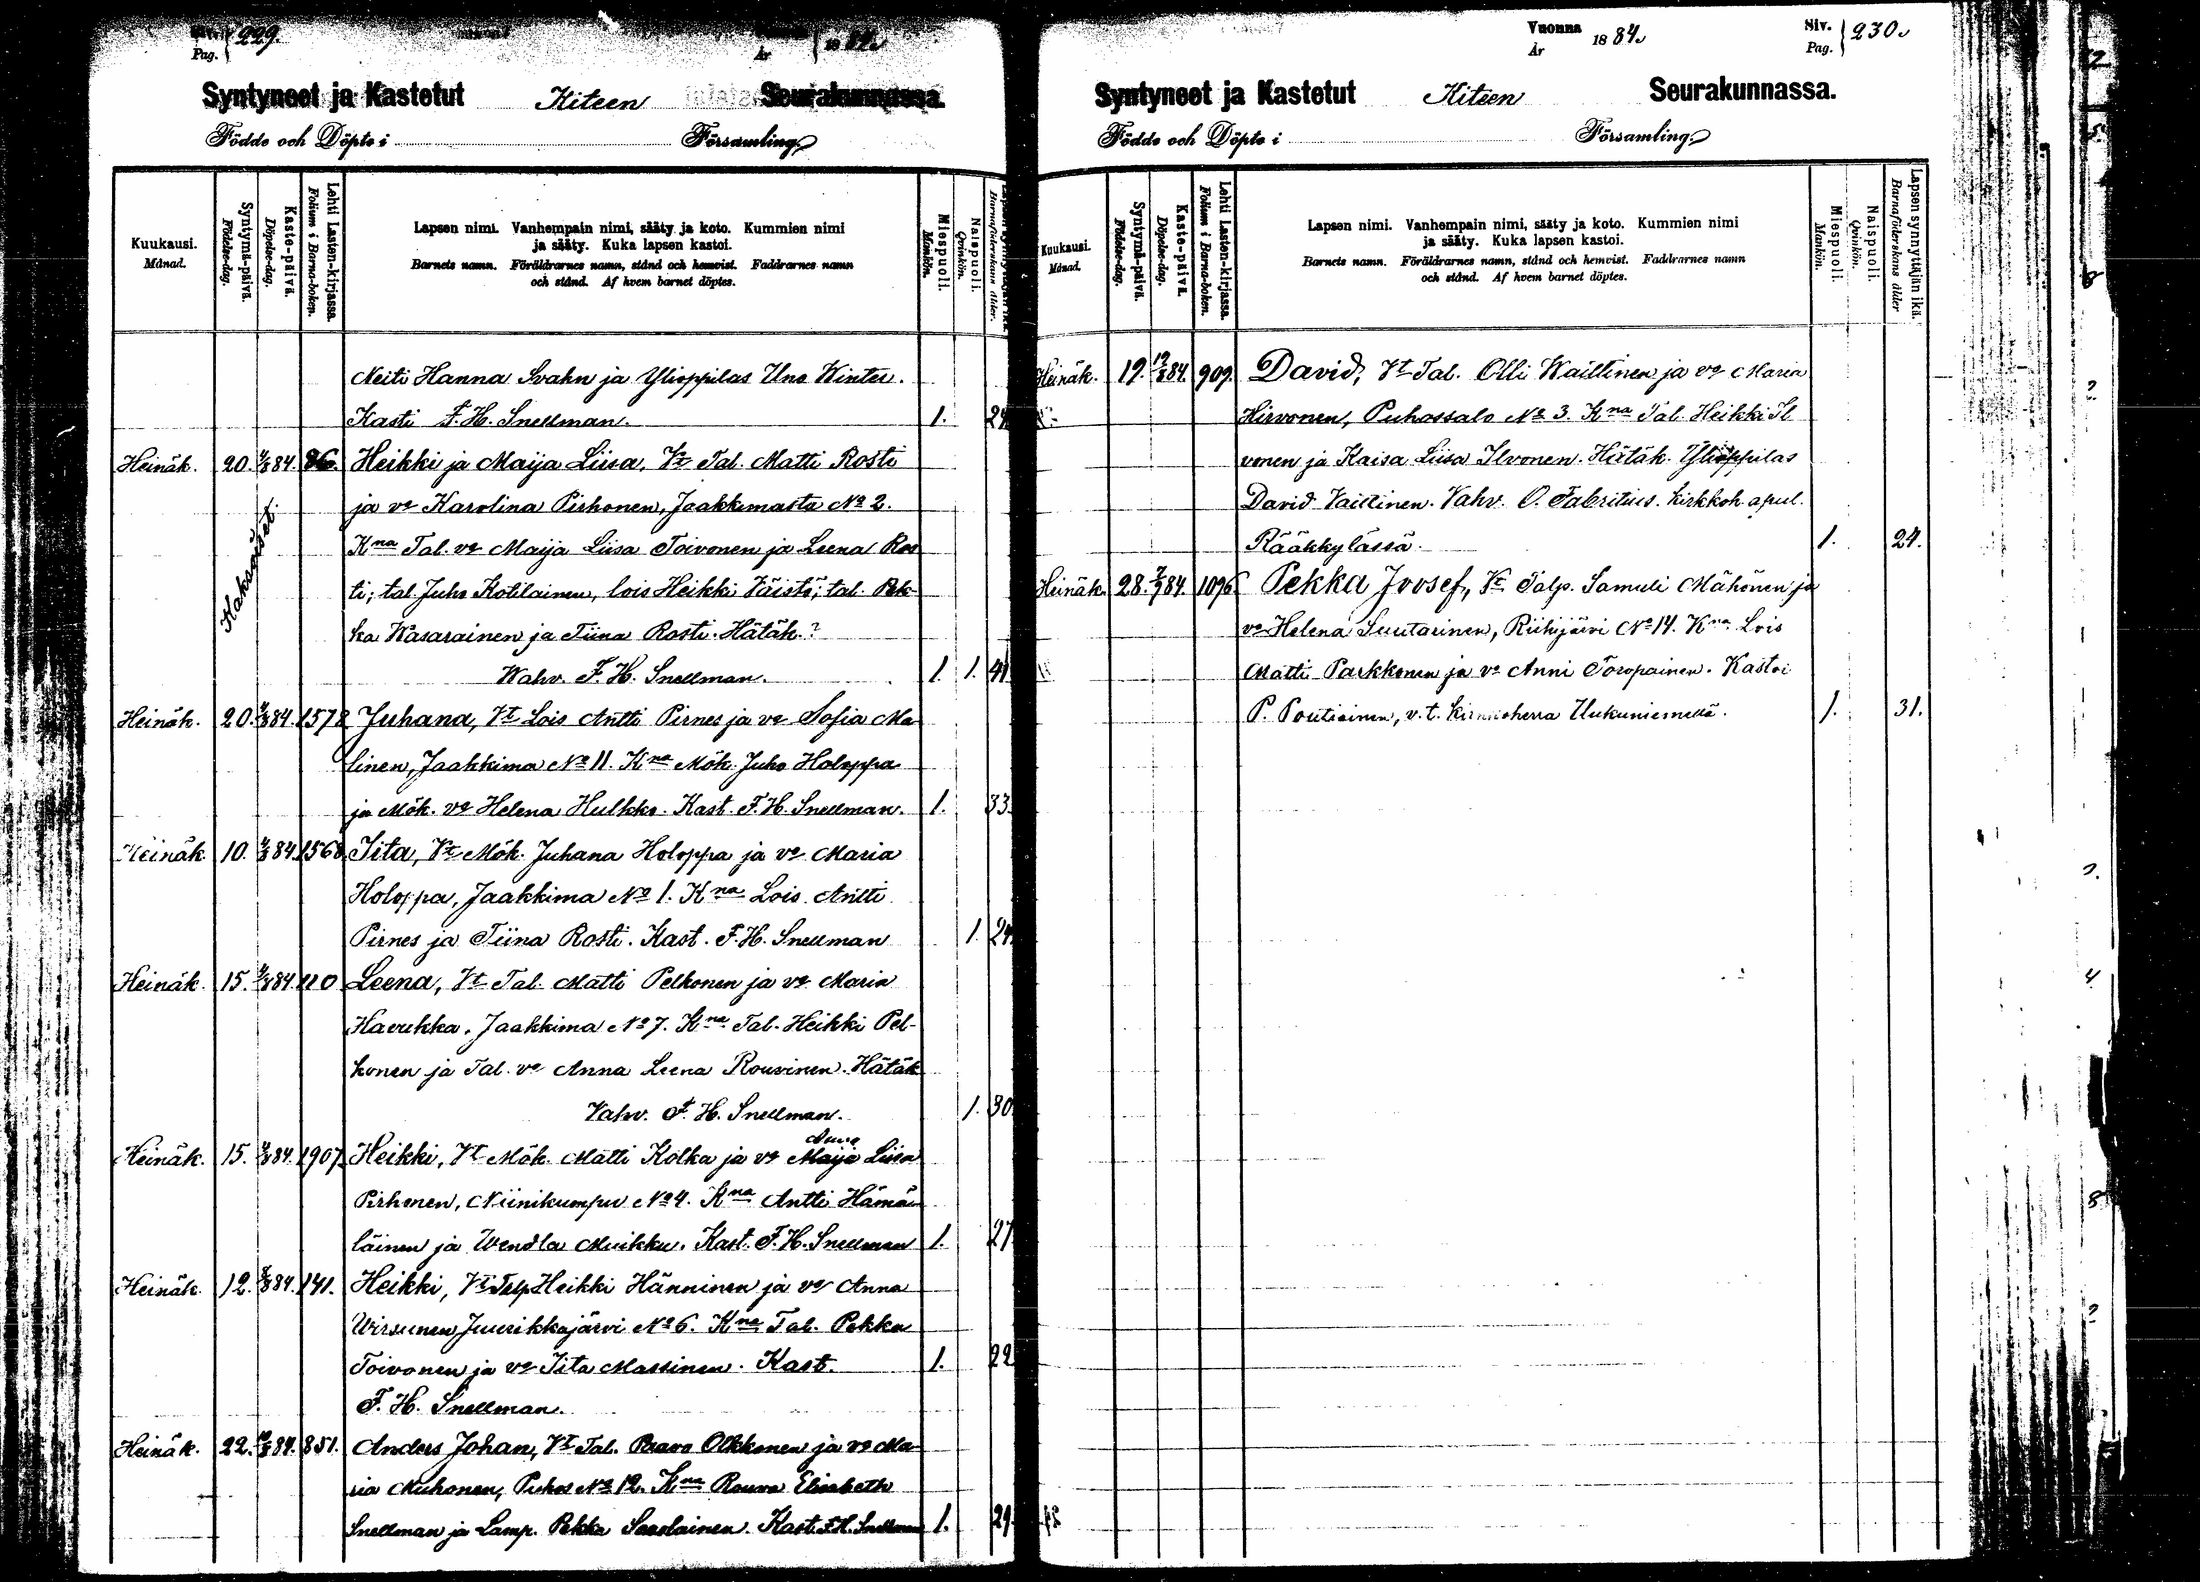 Pag. 229.
År 1884.
Syntyneet ja Kastetut Kiteen Seurakunnassa.
Födde och Döpte i Församling.
Kuukausi. Månad.
Syntymä-päivä. Födelse-dag.
Kaste-päivä. Döpelse-dag.
Lehti Lasten-kirjassa. Folium i Barna-boken.
Lapsen nimi. Vanhempain nimi, sääty ja koto. Kummien nimi
ja sääty. Kuka lapsen kastoi.
Barnets namn. Föräldrarnes namn, stånd och hemvist. Faddrarnes namn
och stånd. Af hvem barnet döptes.
Miespuoli. Mankön.
Naispuoli. Qvinkön.
Barnaföderskans ålder.
Neiti Hanna Svahn ja Ylioppilas Uno Winter.
Kasti F. H. Snellman. 1.
Heinäk. 20. 84. Heikki ja Maija Liisa, Vt Tal. Matti Rosti
ja vo Karolina Pirhonen, Jaakkimasta No 2.
Kaksoiset.
Kna Tal. vo Maija Liisa Toivonen ja Leena Ros
ti; tal. Juho Kotilainen, lois Heikki Väistö; tal. Pek-
ka Wasarainen ja Tiina Rosti. Hätäk.?
Wahv. F. H. Snellman. 1. 1. 41
Heinäk. 20. 84. 1572 Juhana, Vt Lois Antti Pirnes ja vo Sofia Ma
linen, Jaakkima No 11. Kna Mök. Juho Holoppa
ja Mök. vo Helena Hulkko. Kast. F. H. Snellman. 1. 33
Heinäk. 10. 84. 1568 Iita, Vt Mök. Juhana Holoppa ja vo Maria
Holoppa, Jaakkima No 1. Kna Lois Antti
Pirnes ja Tiina Rosti. Kast. F. H. Snellman 1. 24
Heinäk. 15. 84. Leena, Vt Tal. Matti Pelkonen ja vo Maria
Havukka, Jaakkima No 7. Kna Tal. Heikki Pel-
konen ja Tal. vo Anna Leena Rouvinen. Hätäk
Vahv. F. H. Snellman. 1. 30
Anna
Heinäk. 15. 84. 1907. Heikki, Vt Mök. Matti Kolka ja vo Maija Liisa
Pirhonen, Niinikumpu No 4. Kna Antti Hämä
läinen ja Wendla Muikku. Kast. F. H. Snellman 1. 27
Heinäk. 12. 84. 141. Heikki, Vt Talp. Heikki Hänninen ja vo Anna
Wirsunen Juurikkajärvi No 6. Kna Tal. Pekka
Toivonen ja vo Iita Massinen. Kast. 1. 22
F. H. Snellman.
Heinäk. 22. 84. 851. Anders Johan, Vt Tal. Paavo Olkkonen ja vo Ma
ria Muhonen, Puhos No 12. Kna Rouva Elisabeth
Snellman ja Lamp. Pekka Saarelainen. Kast. F. H. Snellman 1. 29.
Vuonna År 1884.
Siv. Pag. 230.
Syntyneet ja Kastetut Kiteen Seurakunnassa.
Födde och Döpte i Församling.
Kuukausi. Månad.
Syntymä-päivä. Födelse-dag.
Kaste-päivä. Döpelse-dag.
Lehti Lasten-kirjassa. Folium i Barna-boken.
Lapsen nimi. Vanhempain nimi, sääty ja koto. Kummien nimi
ja sääty. Kuka lapsen kastoi.
Barnets namn. Föräldrarnes namn, stånd och hemvist. Faddrarnes namn
och stånd. Af hvem barnet döptes.
Miespuoli. Mankön.
Naispuoli. Qvinkön.
Lapsen synnyttäjän ikä. Barnaföderskans ålder
Heinäk. 19. 84. 909. David, Vt Tal. Olli Waittinen ja vo Maria
Hirvonen, Puhossalo No 3. Kna Tal. Heikki Il
vonen ja Kaisa Liisa Ilvonen. Hätäk. Ylioppilas
David Vaittinen. Vahv. O. Fabritius. kirkkoh. apul.
Rääkkylässä. 1. 24.
Heinäk. 28. 84. 1096 Pekka Joosef, Vt Talp. Samuli Mähönen ja
vo Helena Suutarinen, Riihijärvi No 14. Kna Lois
Matti Parkkonen ja vo Anni Toropainen. Kastoi
P. Poutiainen, v.t. kirkkoherra Uukuniemellä. 1. 31.